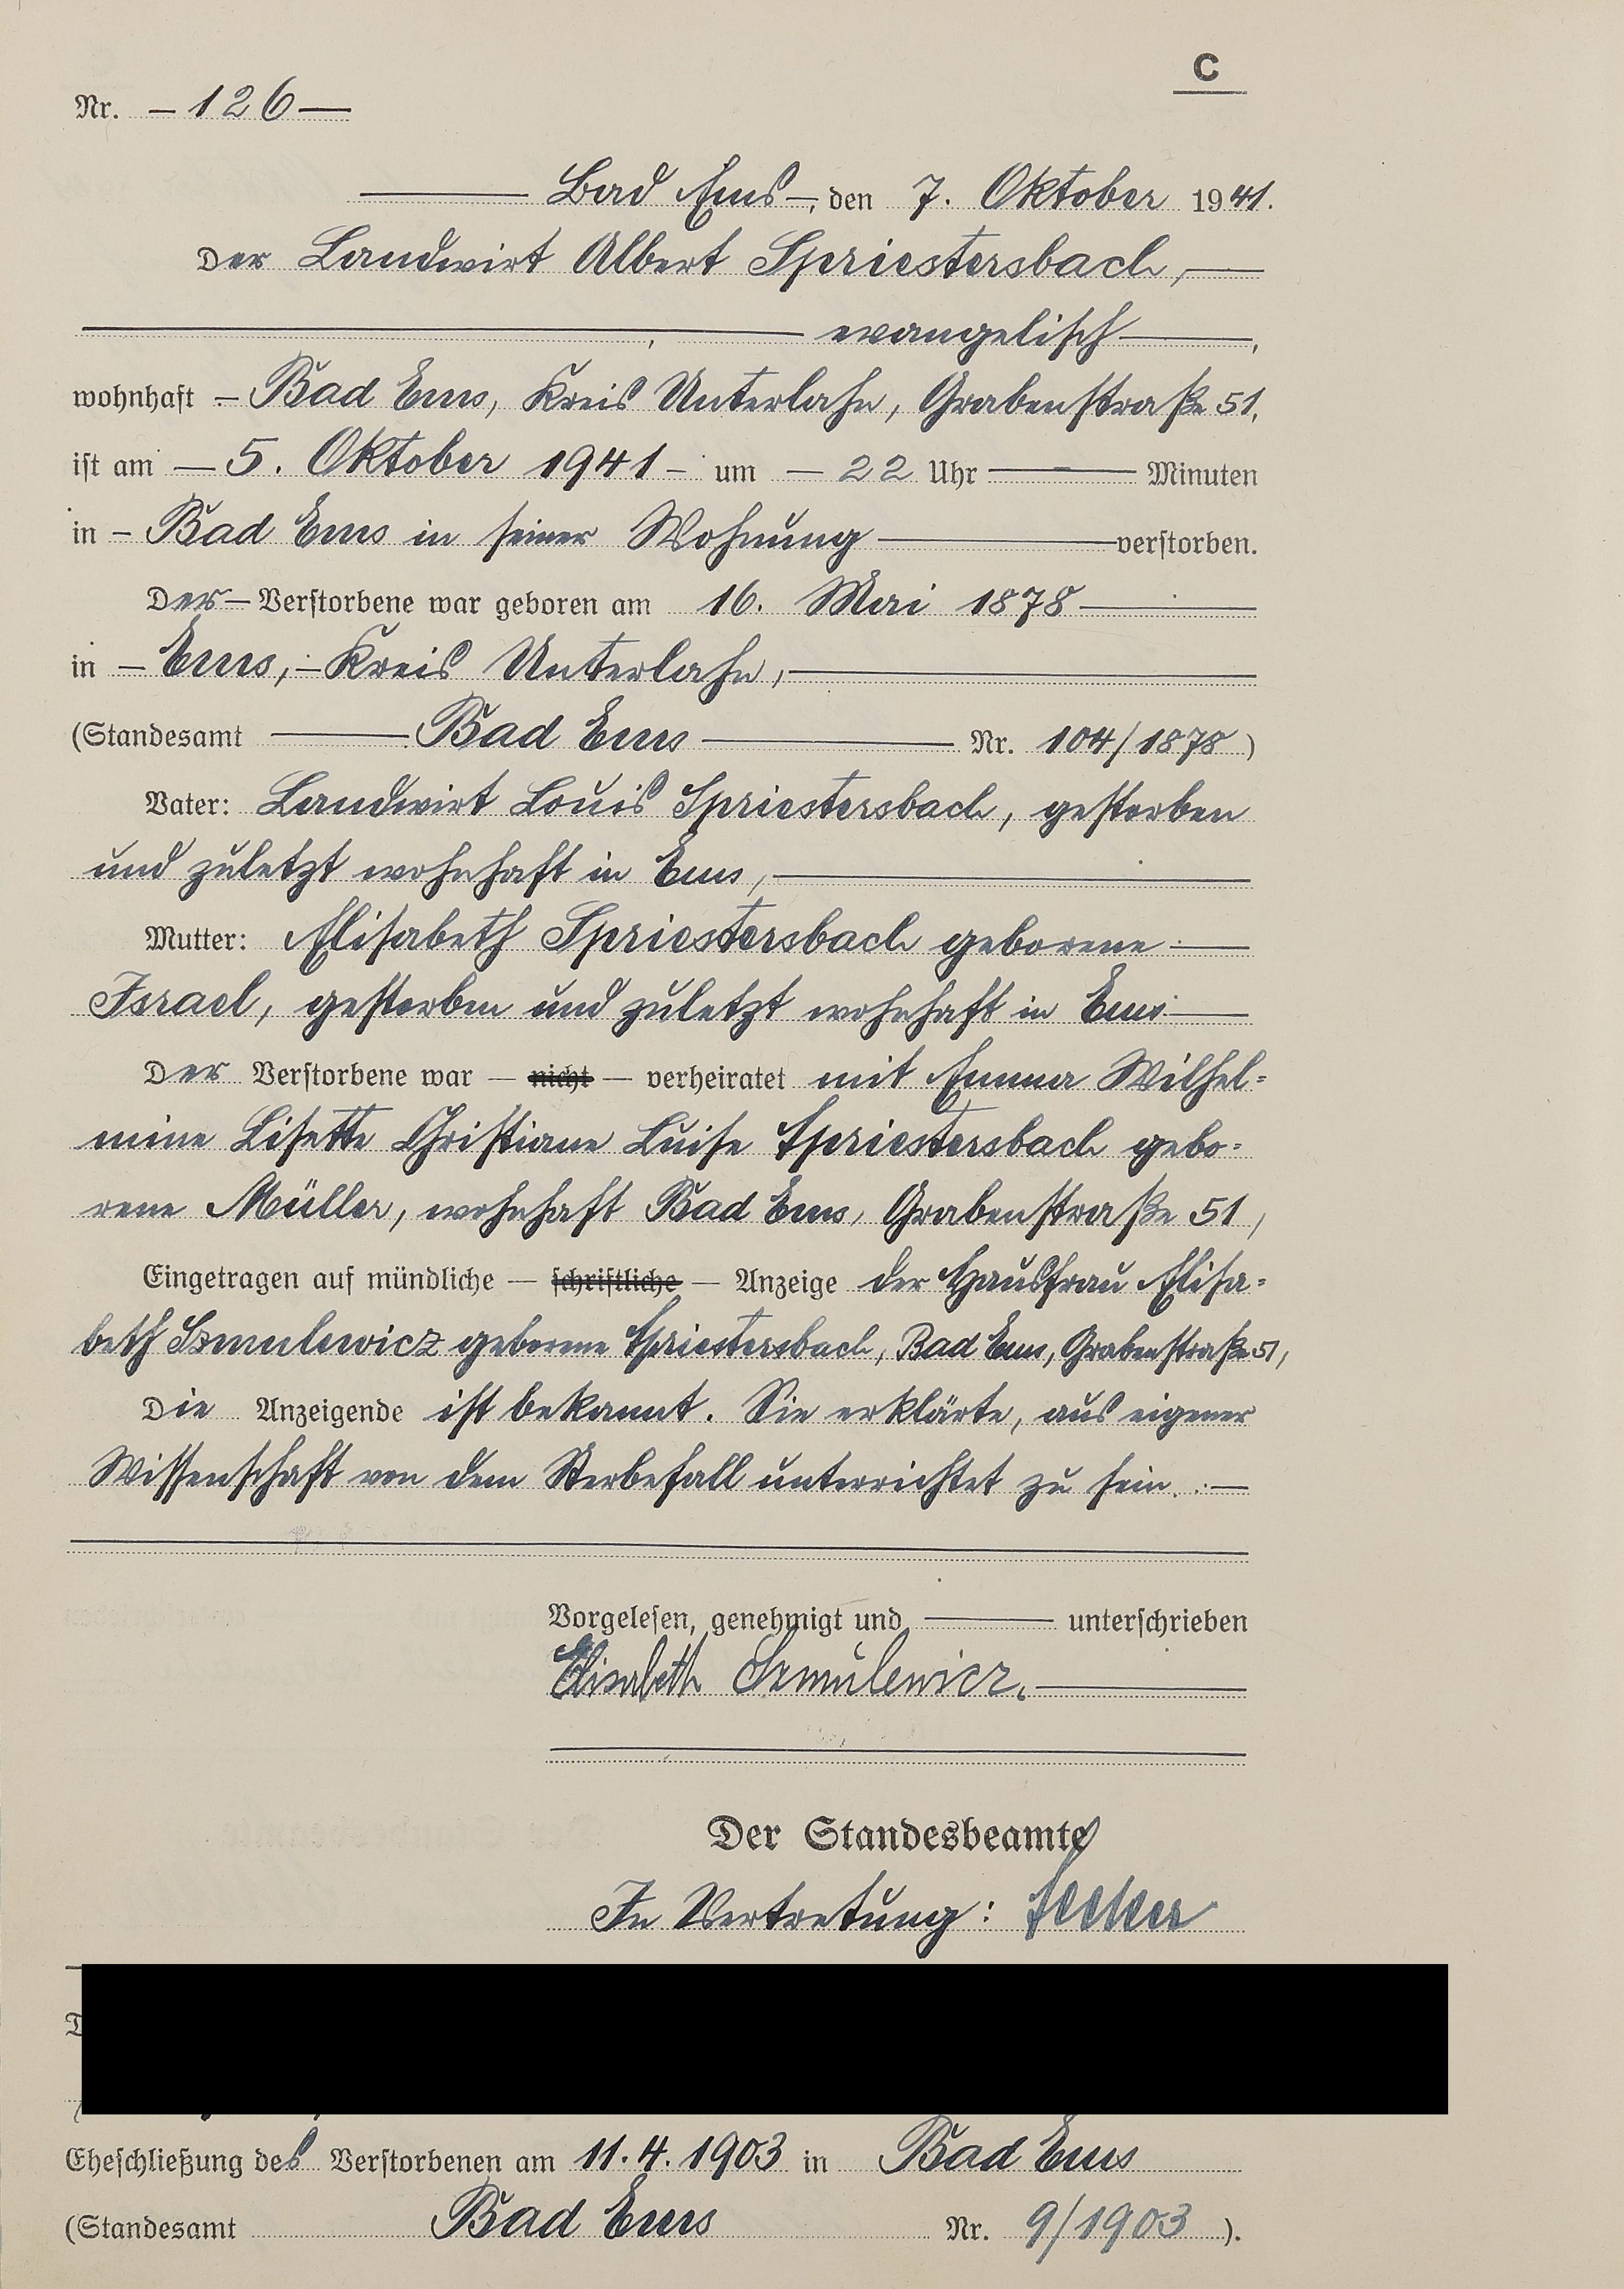 C
Nr. — 126 —
Bad Ems —, den 7. Oktober 1941.
Der Landwirt Albert Spriestersbach, —
— evangelisch —,
wohnhaft — Bad Ems, Kreis Unterlahn, Grabenstraße 51,
ist am — 5. Oktober 1941 — um — 22 Uhr — Minuten
in — Bad Ems in seiner Wohnung — verstorben.
Der — Verstorbene war geboren am 16. Mai 1878 —
in — Ems, — Kreis Unterlahn, —
(Standesamt — Bad Ems — Nr. 104/1878)
Vater: Landwirt Louis Spriestersbach, gestorben
und zuletzt wohnhaft in Ems, —
Mutter: Elisabeth Spriestersbach geborene —
Israel, gestorben und zuletzt wohnhaft in Ems —
Der Verstorbene war — nicht — verheiratet mit Emma Wilhel-
mine Lisette Christiane Luise Spriestersbach gebo-
rene Müller, wohnhaft Bad Ems, Grabenstraße 51,
Eingetragen auf mündliche — schriftliche — Anzeige der Hausfrau Elisa-
beth Szmulewicz geborene Spriestersbach, Bad Ems, Grabenstraße 51,
Die Anzeigende ist bekannt. Sie erklärte, aus eigener
Wissenschaft von dem Sterbefall unterrichtet zu sein. —
Vorgelesen, genehmigt und — unterschrieben
Elisabeth Szmulewicz. —
Der Standesbeamte
In Vertretung:
Eheschließung des Verstorbenen am 11.4.1903 in Bad Ems
(Standesamt Bad Ems Nr. 9/1903).